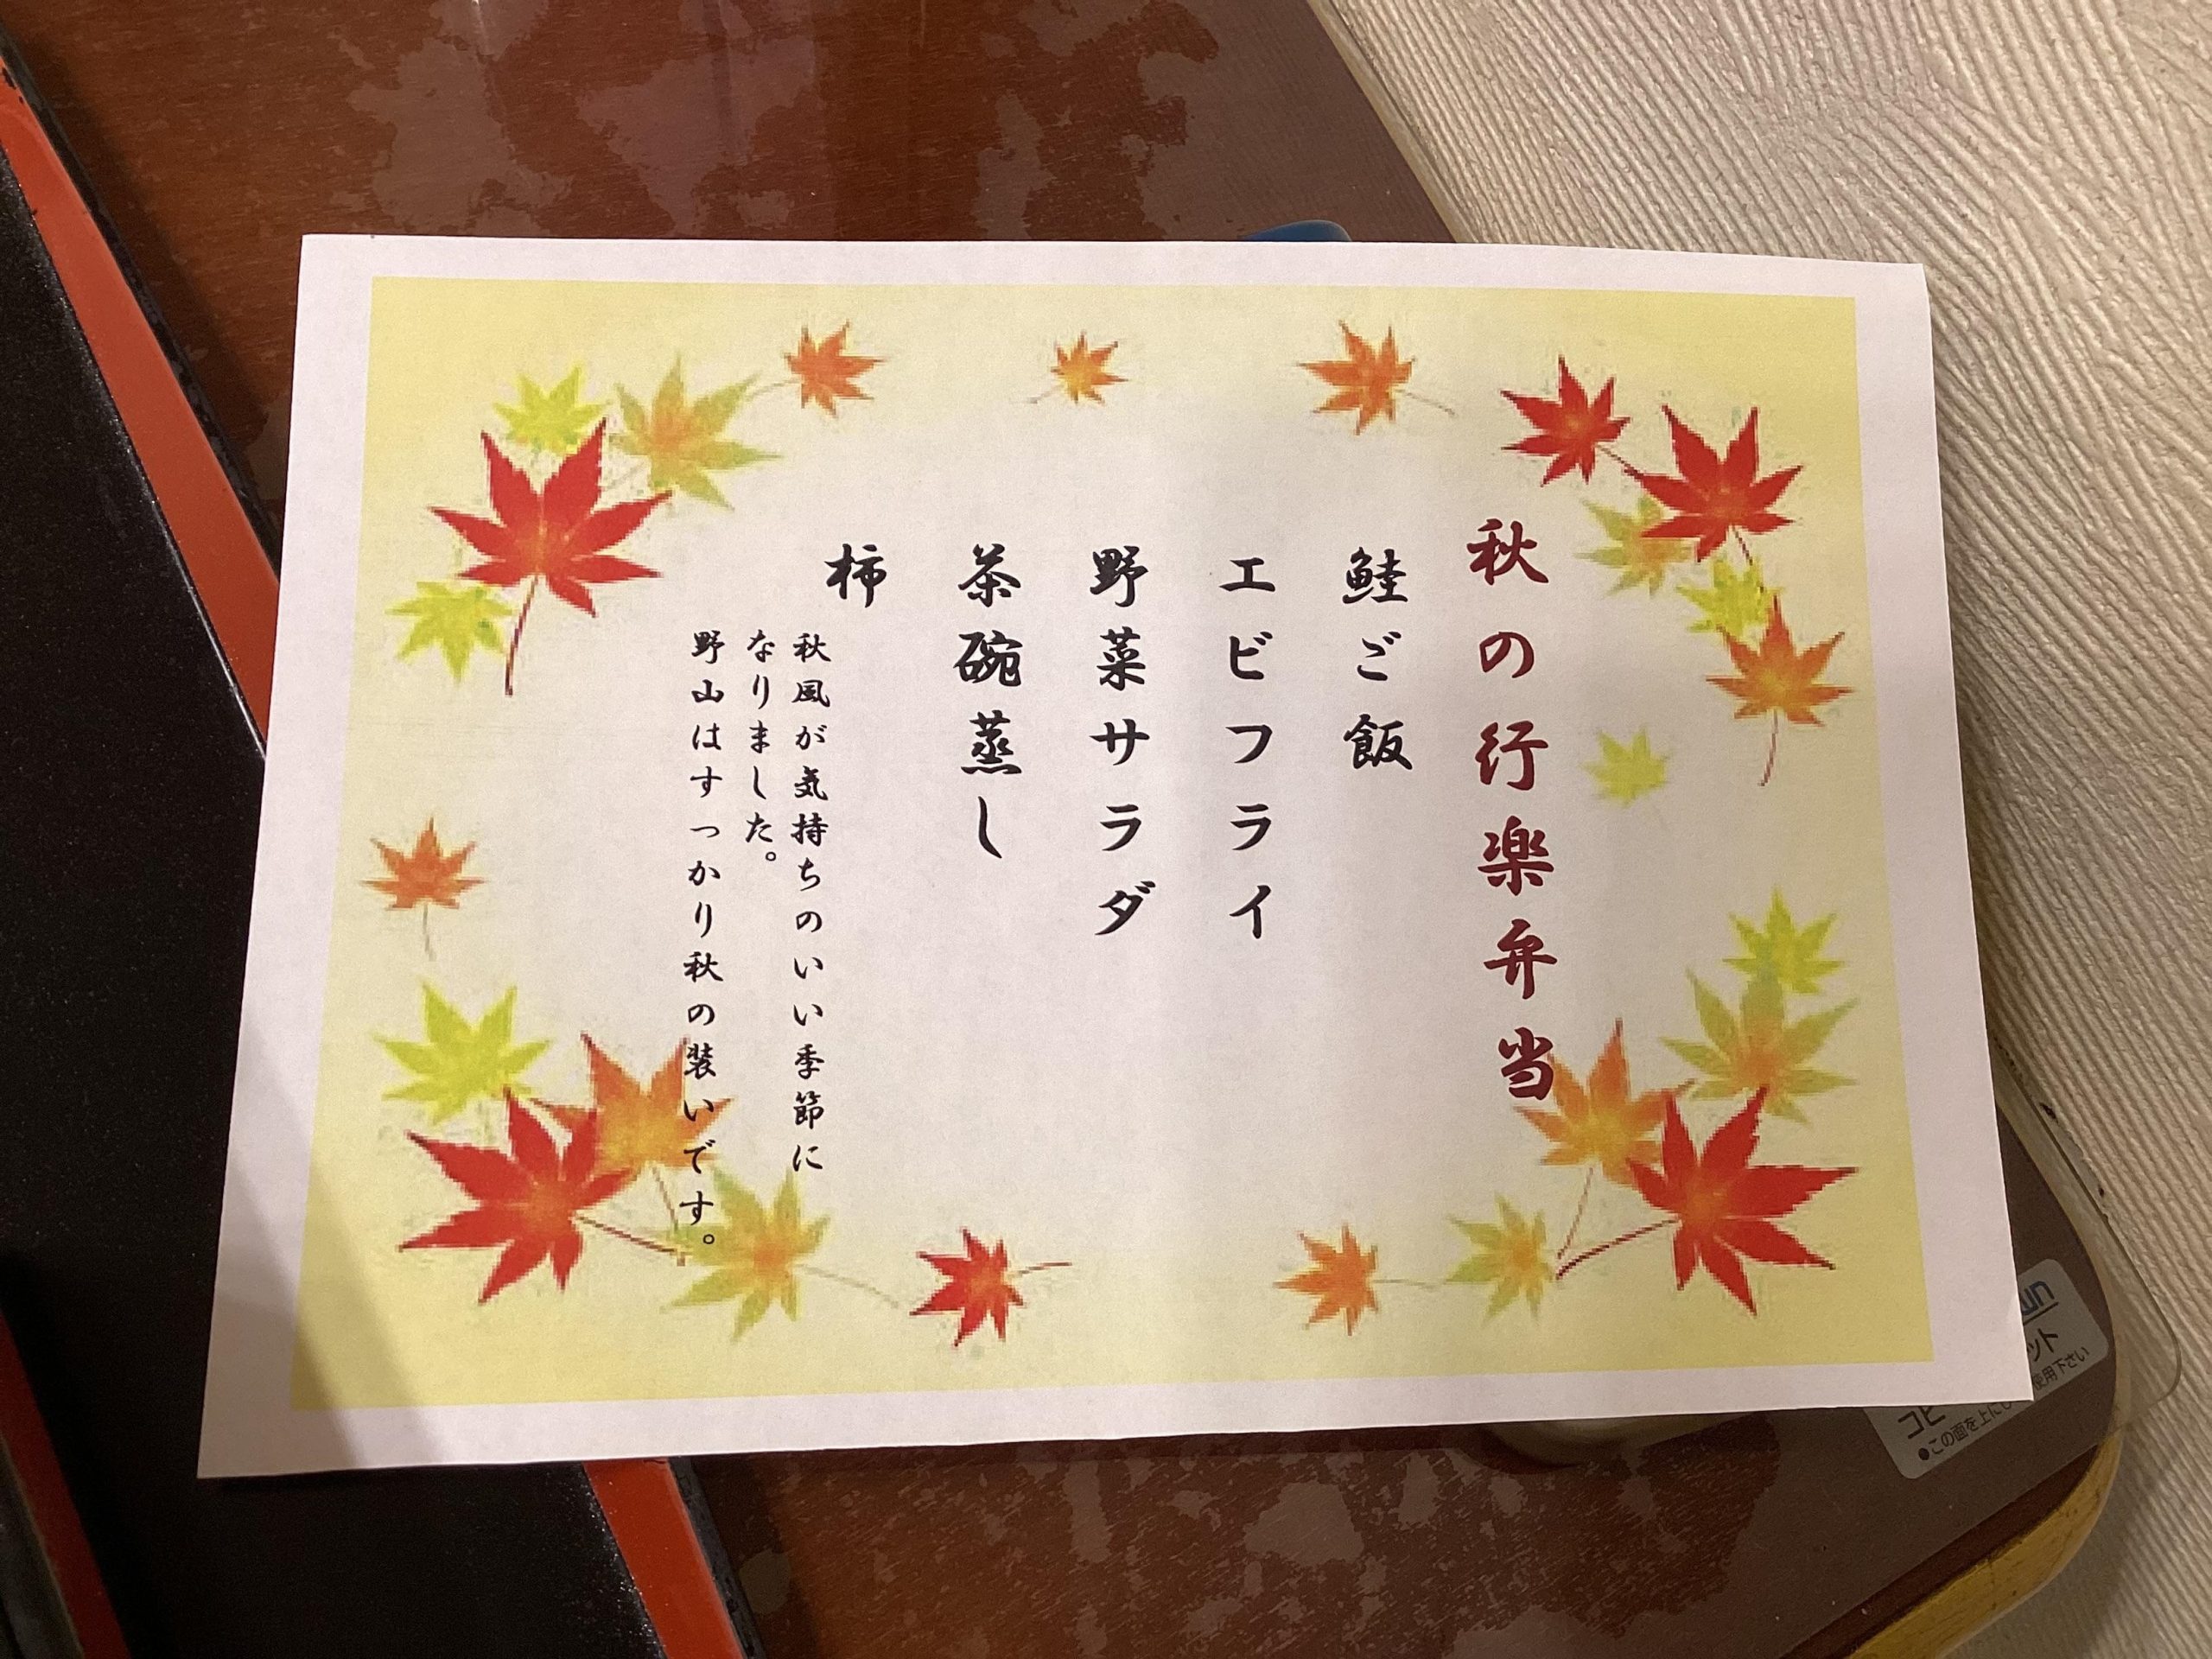 秋の行楽弁当
鮭ご飯
エビフライ
野菜サラダ
茶碗蒸し
柿
秋風が気持ちのいい季節に
なりました。
野山はすっかり秋の装いです。
●この面を上にし
使用下さい